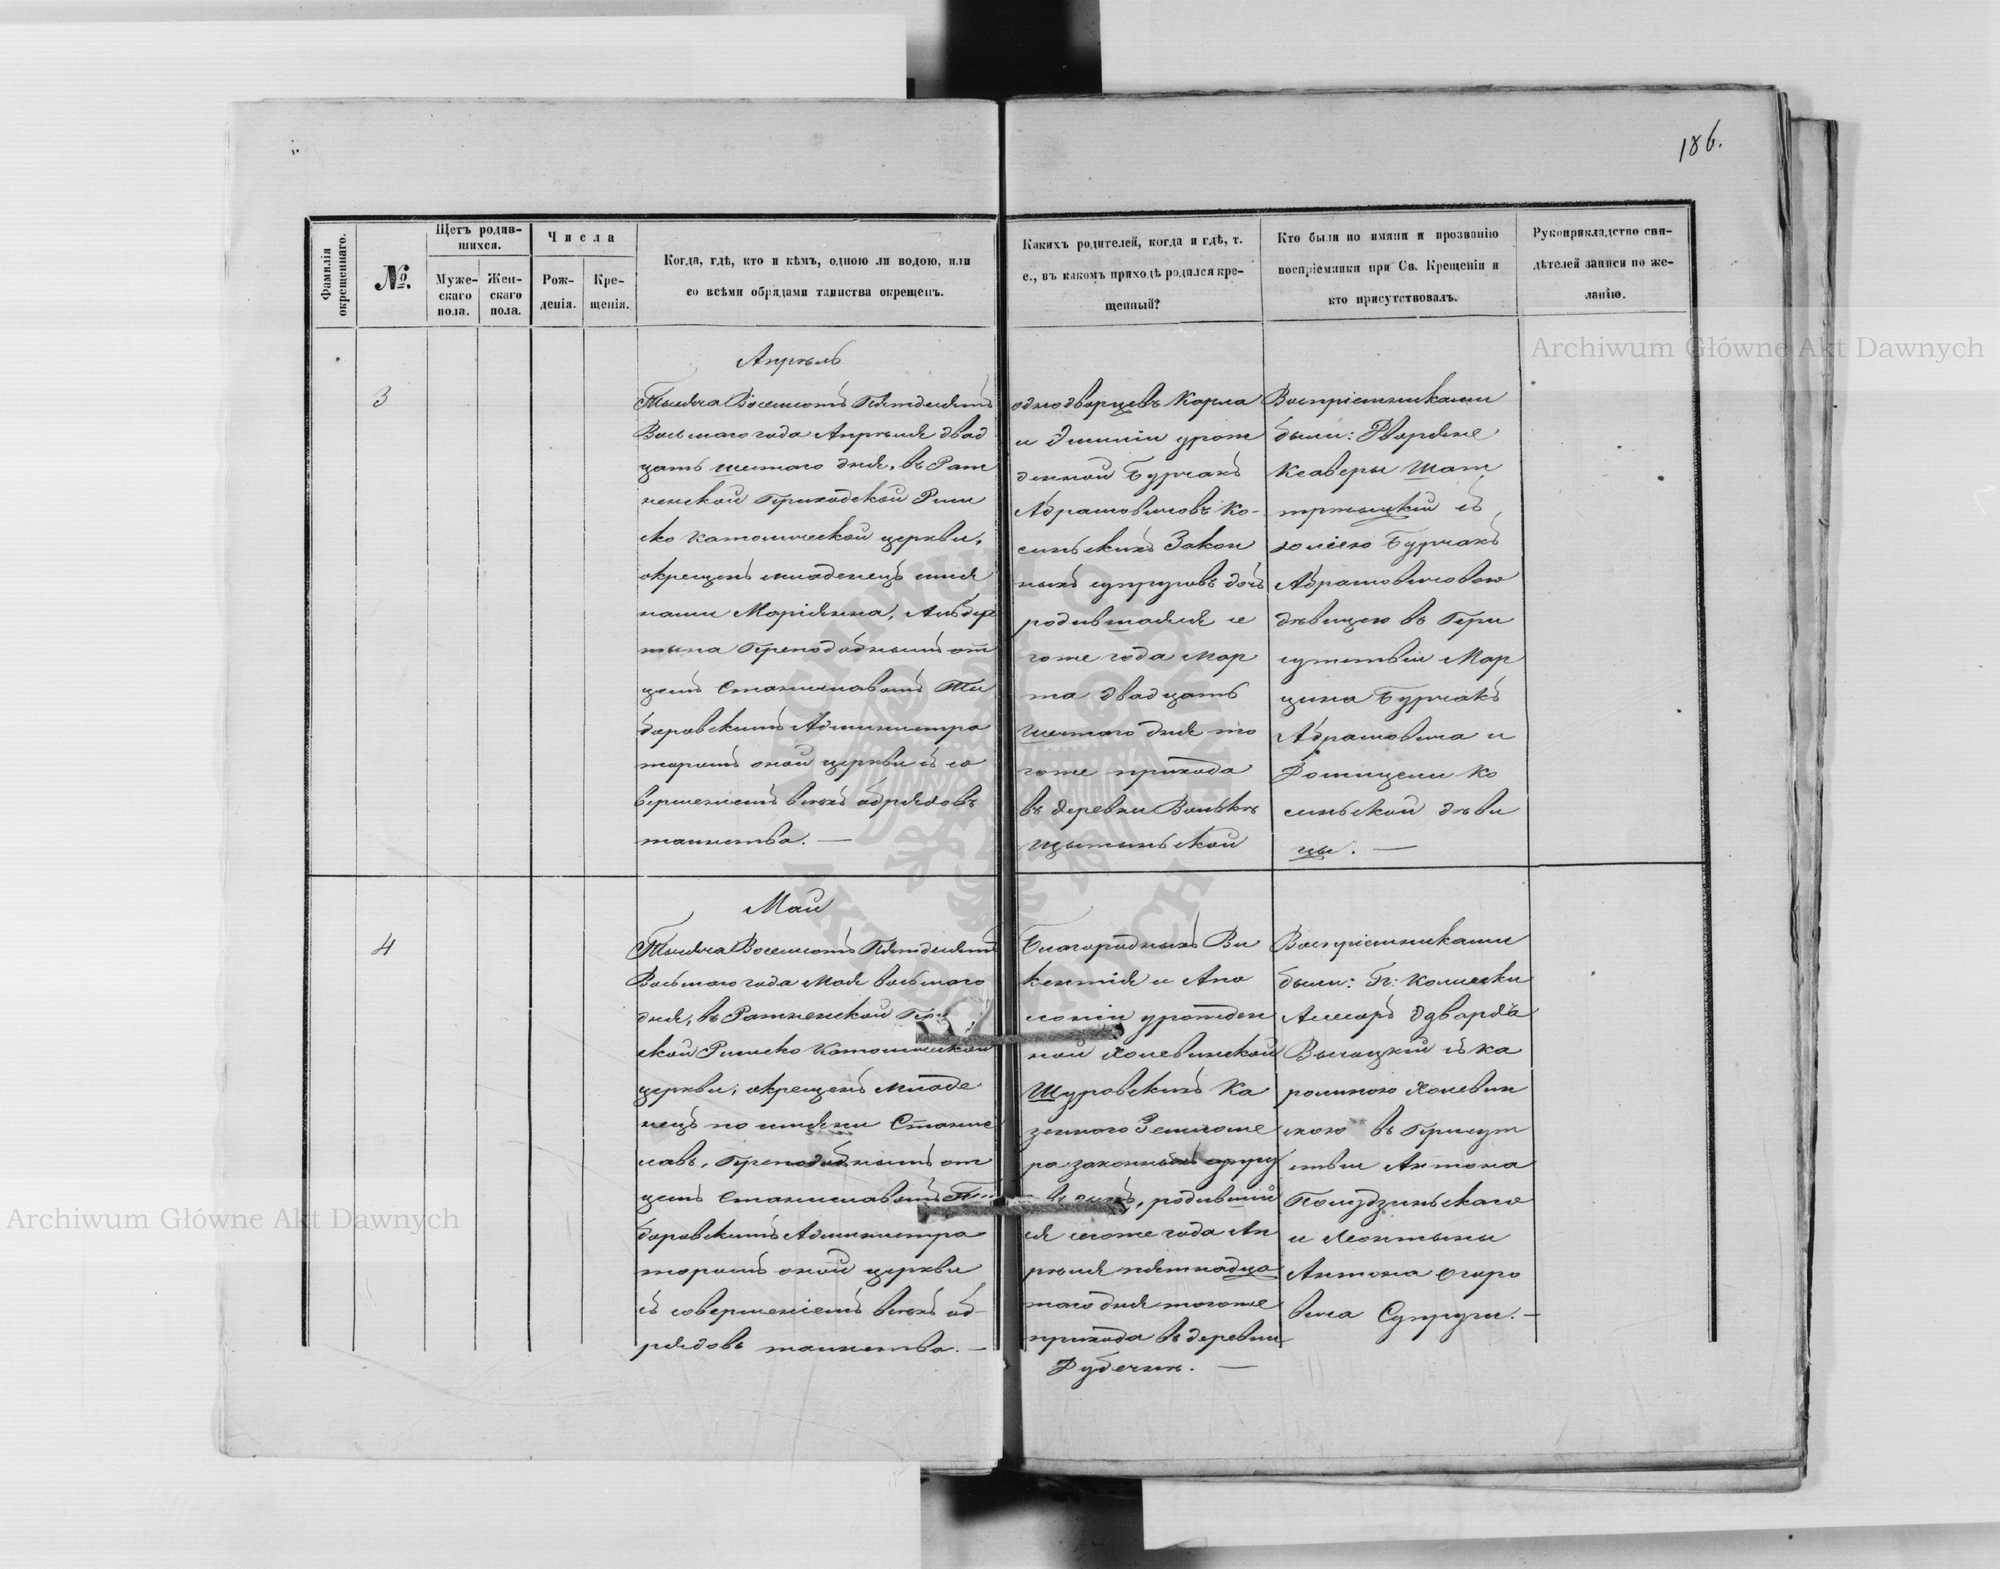 186.
Фамилія окрещеннаго.
№.
Щетъ родив-
шихся.
Муже-
скаго
пола.
Жен-
скаго
пола.
Числа
Рож-
денія.
Кре-
щенія.
Когда, гдѣ, кто и кѣмъ, одною ли водою, или
со всѣми обрядами таинства окрещенъ.
Какихъ родителей, когда и гдѣ, т.
е., въ какомъ приходѣ родился кре-
щенный?
Кто были по имяни и прозванію
воспріемники при Св. Крещеніи и
кто присутствовалъ.
Рукоприкладство сви-
дѣтелей записи по же-
ланію.
3
Апрѣль
Тысяча Восемсотъ Пятдесятъ
Восьмаго года Апрѣля двад
цать шестаго дня, въ Рат
ненской Приходской Рим
ско Католической церкви,
окрещенъ младенецъ имя
нами Маріянна, Альбер
тына Преподобнымъ от
цемъ Станиславомъ Ти
боровскимъ Администра
торомъ оной церкви съ со
вершеніемъ всѣхъ обрядовъ
таинства. —
однодворцевъ Карла
и Эмиліи урож
денной Бурчакъ
Абрамовичовъ Ко-
синьскихъ Закон
ныхъ супруговъ дочь
родившаяся се
гоже года Мар
та двадцать
Шестаго дня то
гоже прихода
въ деревни Волькѣ
Щытыньской
Воспріемниками
были: Дворяне
Ксаверы Шат
тржыцкій съ
юліею Бурчакъ
Абрамовичовою
дѣвицею въ При
сутствіи Мар
цина Бурчакъ
Абрамовича и
Домицели Ко
синьской дѣви
цы. —
4
Маій
Тысяча Восемсотъ Пятдесятъ
Восьмаго года Мая восьмаго
дня, въ Ратненской При
ской Римско Католической
церкви, окрещенъ младе
нецъ по имяни Станис
лавъ, Преподобнымъ от
цемъ Станиславомъ Ти
боровскимъ Администра
торомъ оной церкви
съ совершеніемъ всѣхъ об-
рядовъ таинства. —
Благородныхъ Ви
кентія и Апо
лоніи урожден
ной Холевинской
Щуровскихъ Ка
зеннаго Землеме
ра законныхъ супру
говъ сынъ, родившій
ся сегоже года Ап
рѣля пятнадца
таго дня тогоже
прихода въ деревни
Дубечнѣ. —
Воспріемниками
были: Гг: Коллежки
Ассесоръ Эдвардъ
Высоцкій съ Ка
ролиною Холевин
скою въ Присут
ствіи Антона
Полудзиньскаго
и Леонтыны
Антона Огаро
вича Супруги. —
Archiwum Główne Akt Dawnych
Archiwum Główne Akt Dawnych
ARCHIWUM GŁÓWNE
AKT DAWNYCH